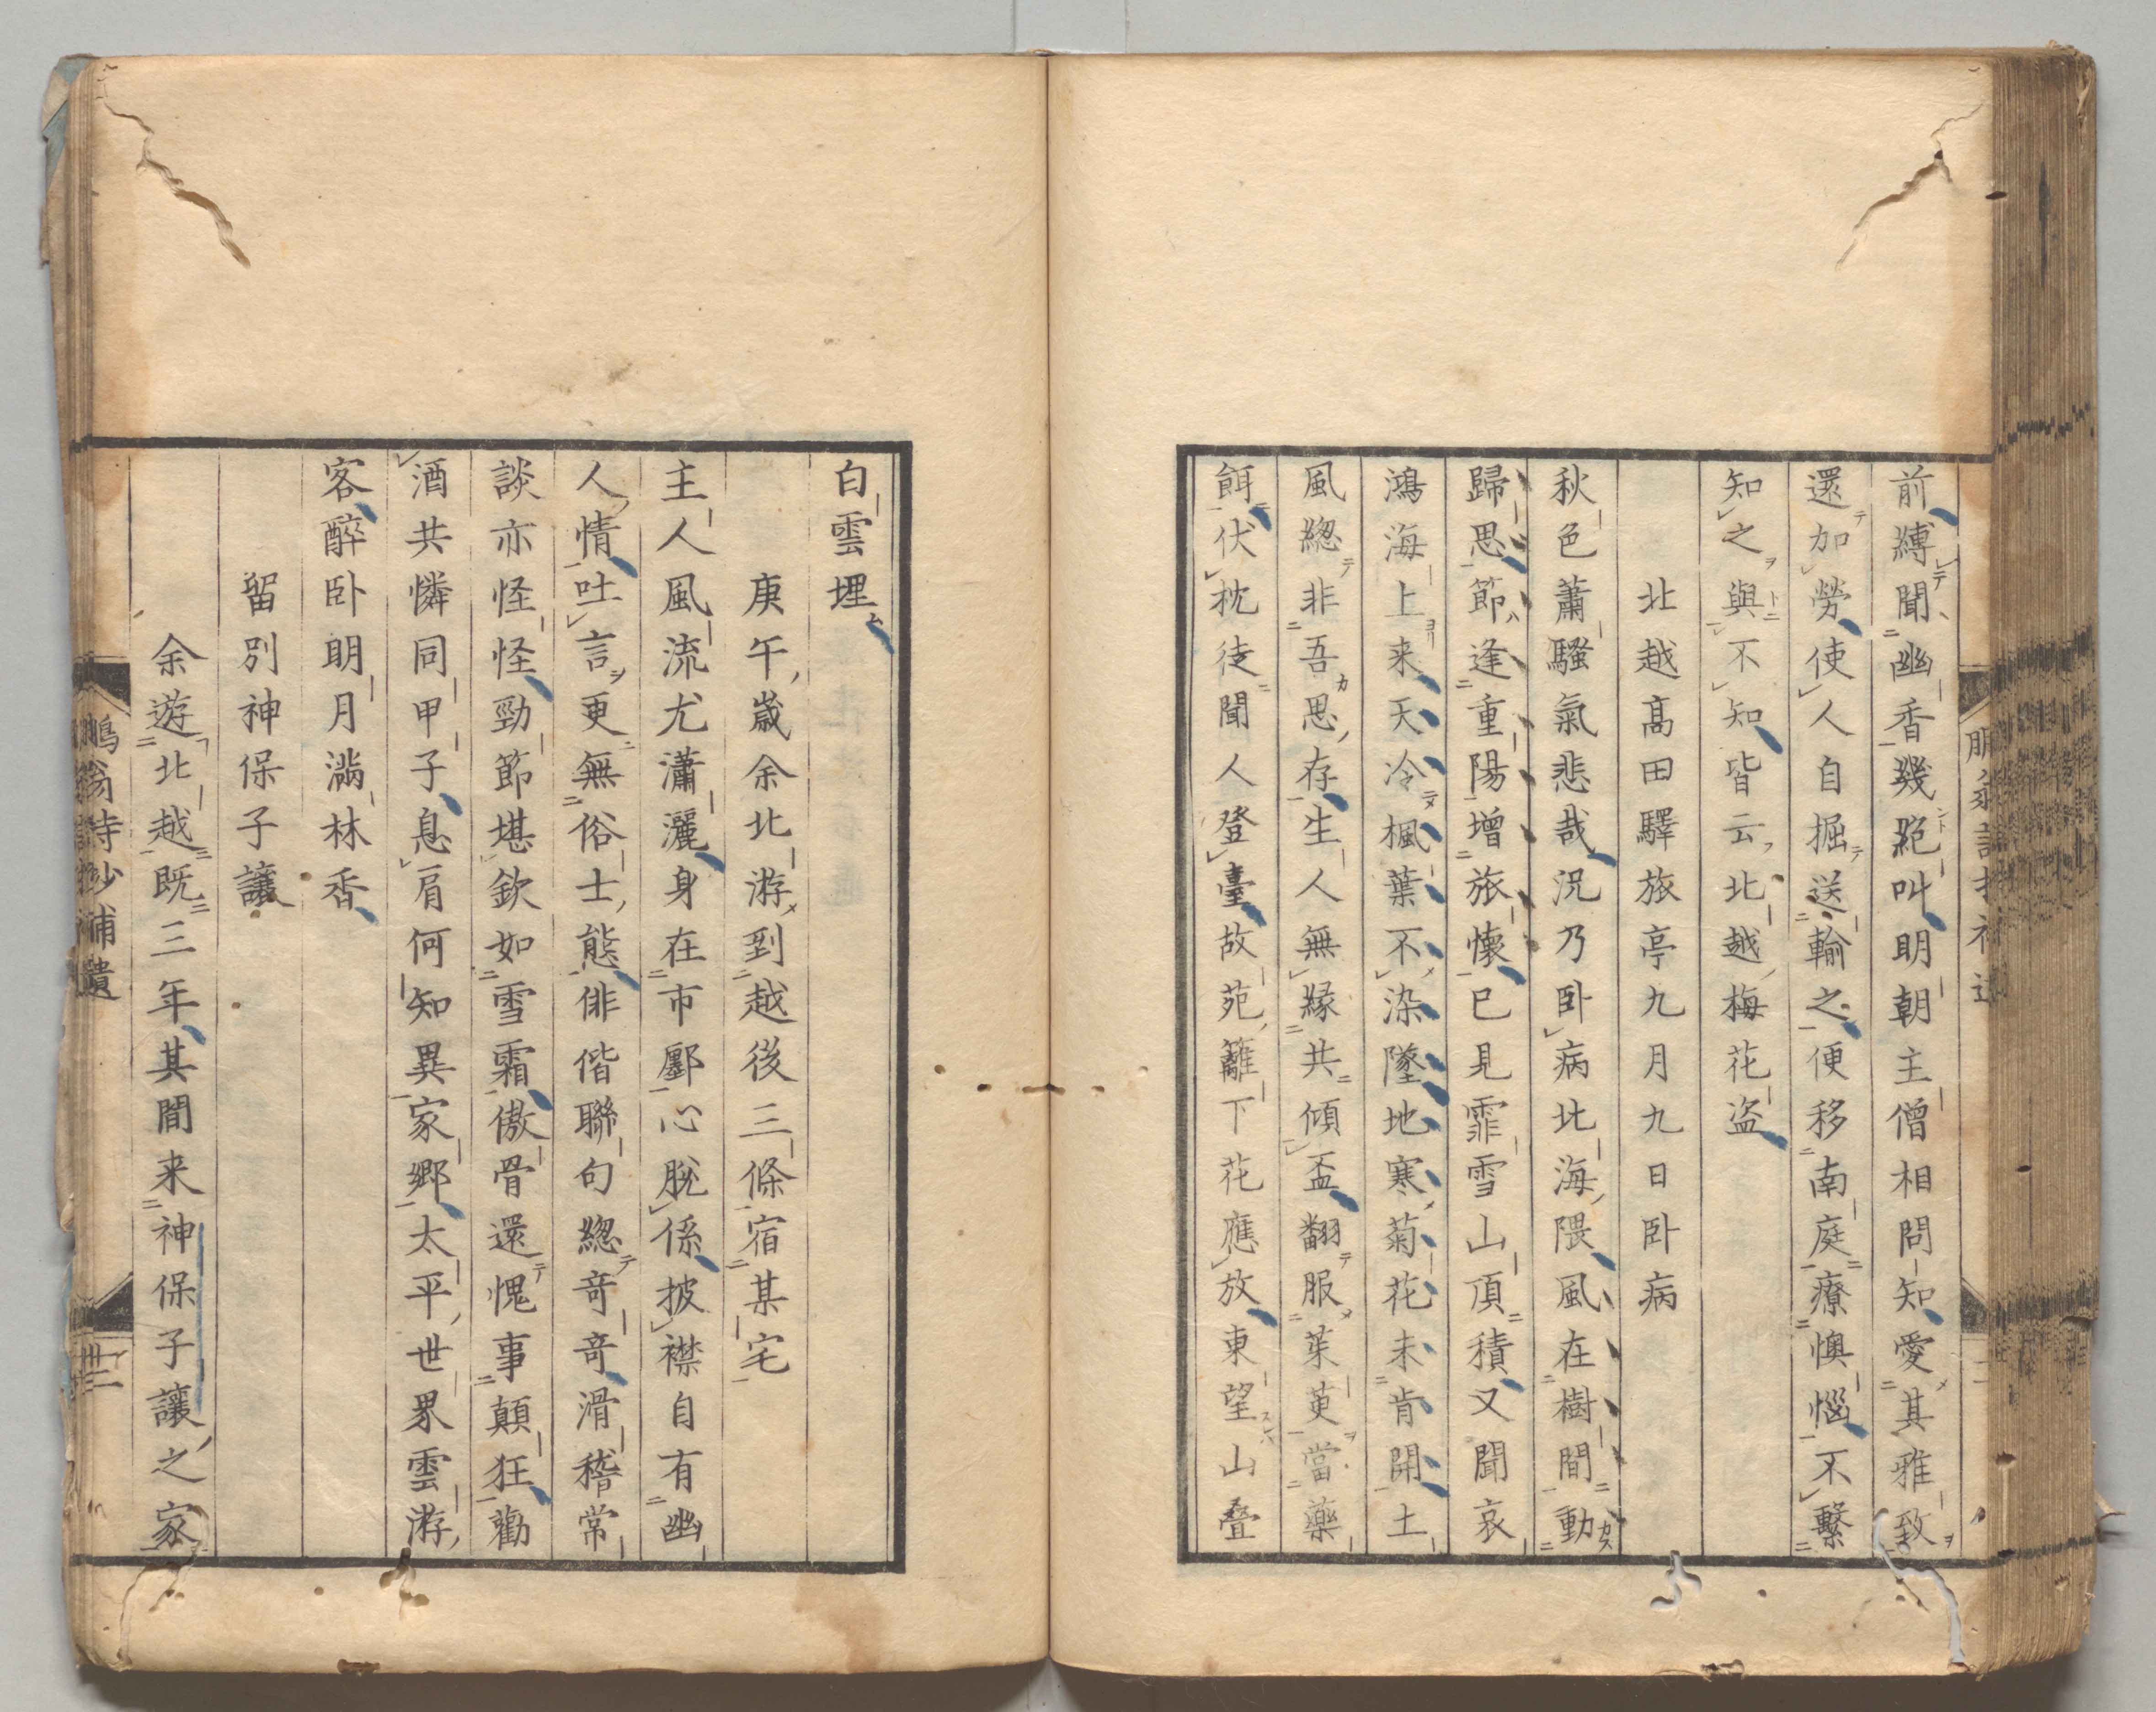 前縛聞幽香幾絶叫明朝主僧相問知愛其雅致
還加勞使人自掘送輸之便移南庭療懊惱不繫
知之與不知皆云北越梅花盗
北越髙田驛旅亭九月九日卧病
秋色蕭騷氣悲哉況乃卧病北海隈風在樹間動
歸思節逢重陽增旅懷已見霏雪山頂積又聞哀
鴻海上来天冷楓葉不染墜地寒菊花未肯開土
風總非吾思存生人無緣共傾盃翻服茱萸當藥
餌伏枕徒聞人登臺故苑籬下花應放東望山疊
白雲埋
庚午歳余北游到越後三條宿某宅
主人風流尤瀟灑身在市鄽心脫係披襟自有幽
人情吐言更無俗士態俳偕聯句總竒竒滑稽常
談亦怪怪勁節堪欽如雪霜傲骨還愧事顛狂勸
酒共憐同甲子息肩何知異家郷太平世界雲游
客醉卧明月滿林香
留別神保子讓
余遊北越既三年其間来神保子讓之家
鵬翁詩抄補遺